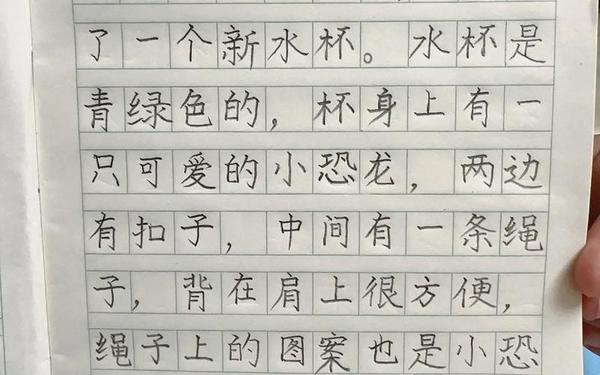 了一个新水杯。水杯是
青绿色的，杯身上有一
只可爱的小恐龙，两边
有扣子，中间有一条绳
子，背在肩上很方便，
绳子上的图案也是小恐